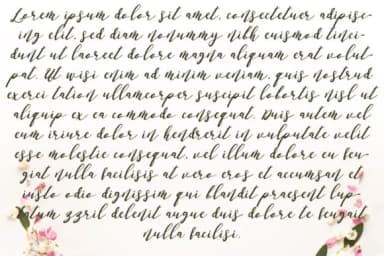 Lorem ipsum dolor sit amet, consectetuer adipisc-
ing elit, sed diam nonummy nibh euismod tinci-
dunt ut laoreet dolore magna aliquam erat volut-
pat. Ut wisi enim ad minim veniam, quis nostrud
exerci tation ullamcorper suscipit lobortis nisl ut
aliquip ex ea commodo consequat. Duis autem vel
eum iriure dolor in hendrerit in vulputate velit
esse molestie consequat, vel illum dolore eu feu-
giat nulla facilisis at vero eros et accumsan et
iusto odio dignissim qui blandit praesent lup-
tatum zzril delenit augue duis dolore te feugait
nulla facilisi.